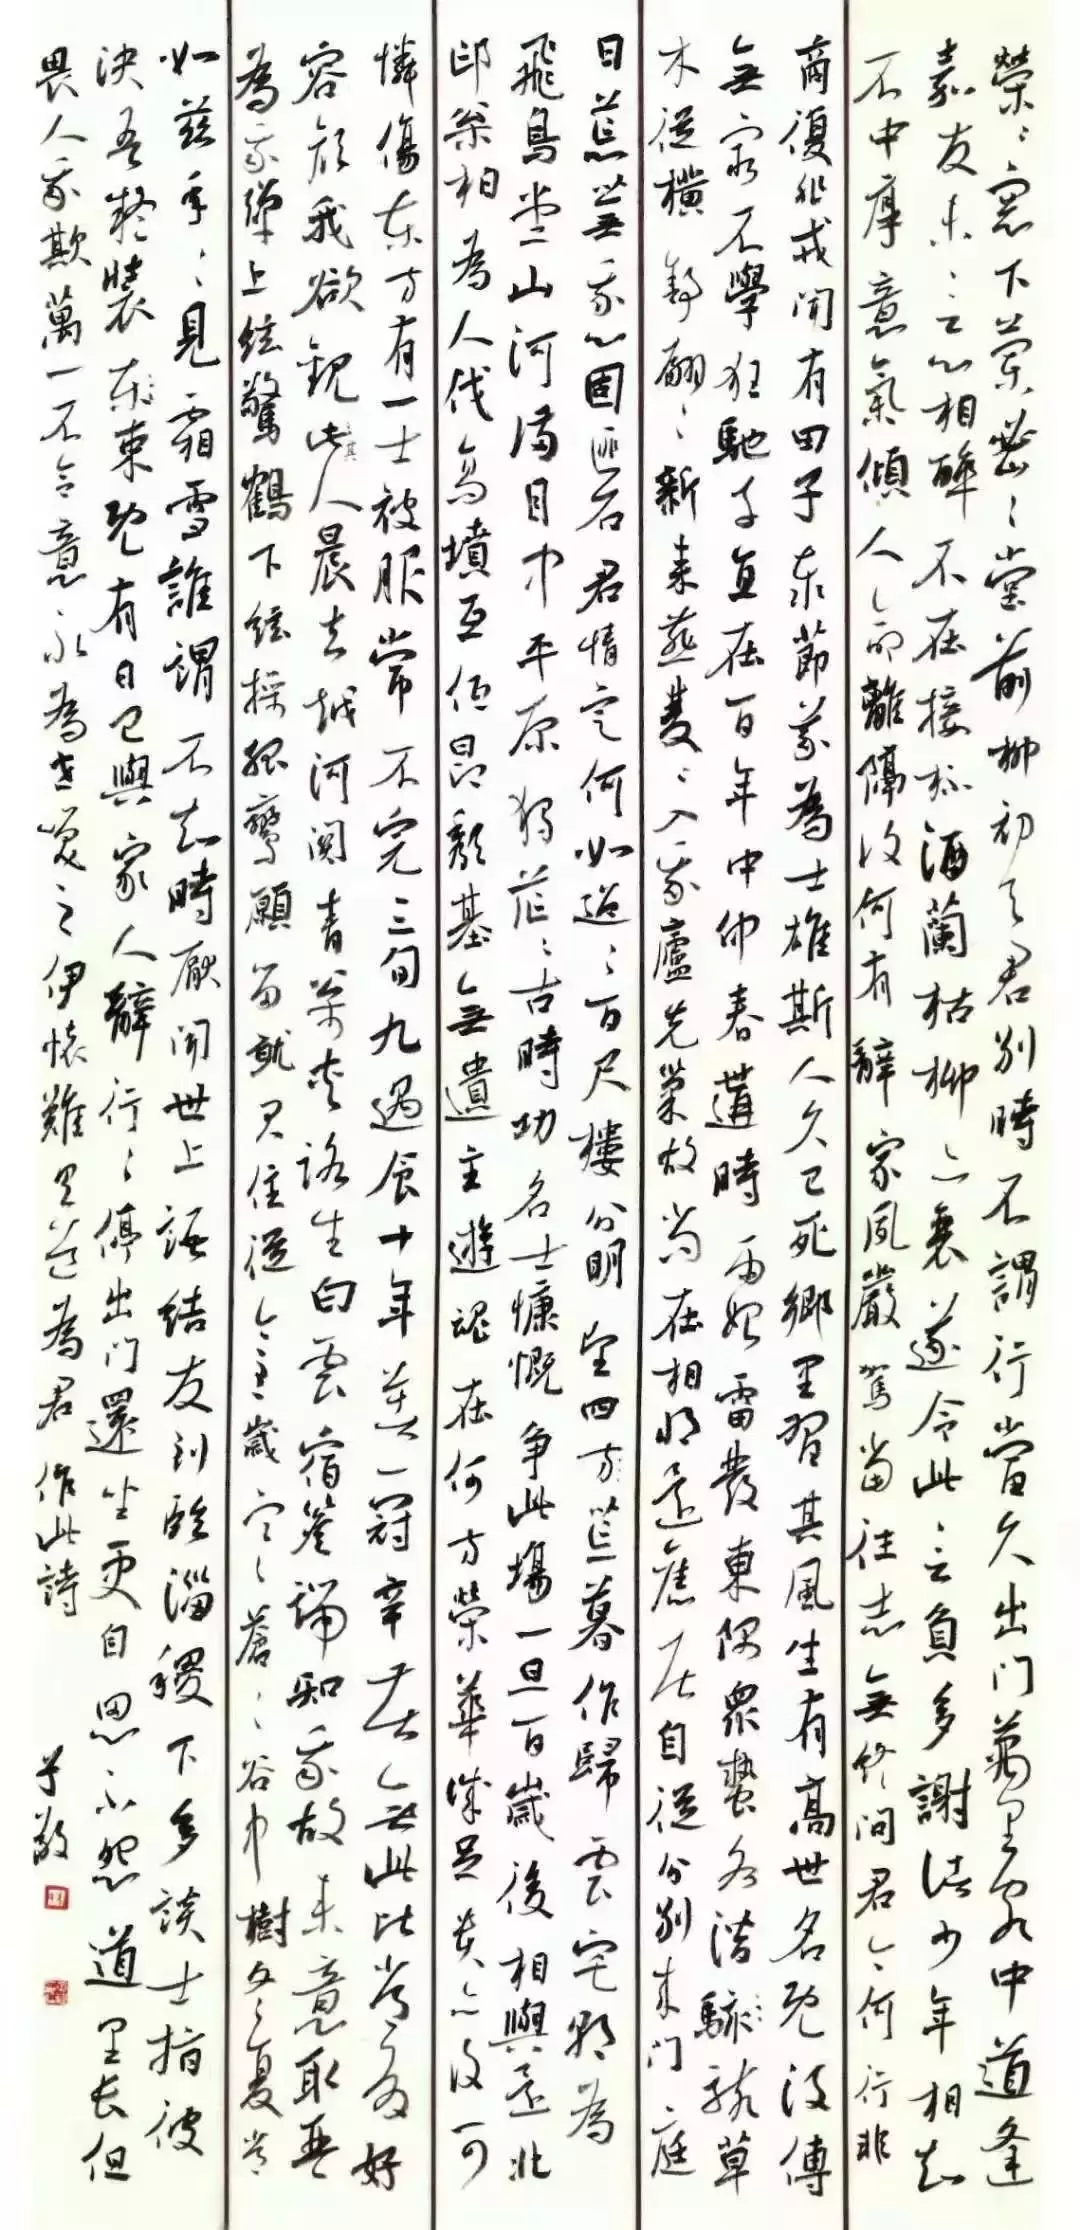 榮〻窗下蘭密〻堂前柳初與君別時不謂行當久出門萬里客中道逢
嘉友未言心相醉不在接杯酒蘭枯柳亦衰遂令此言負多謝諸少年相知
不中厚意氣傾人命離隔復何有辭家夙嚴駕當往志無終問君今何行非
商復非戎聞有田子泰節義為士雄斯人久已死鄉里習其風生有高世名既沒傳
無窮不學狂馳子直在百年中仲春遘時雨始雷發東隅眾蟄各潛駭駭草
木從橫舒翩〻新來燕雙〻入我廬先巢故尚在相將還舊居自從分別來門庭
日荒蕪我心固匪石君情定何如迢〻百尺樓分明望四方荒暮作歸雲宅朝為
飛鳥堂山河滿目中平原獨茫〻古時功名士慷慨爭此場一旦百歲後相與還北
邙松柏為人伐高墳互低昂頹基無遺主遊魂在何方榮華誠足貴亦復可
憐傷東方有一士被服常不完三旬九遇食十年著一冠辛苦無此比常有好
容顏我欲觀此其人晨去越河關青松夾路生白雲宿簷端知我故來意取琴
為我彈上絃驚鶴下絃操孤鸞願留就君住從今至歲寒蒼〻谷中樹冬夏常
如茲年〻見霜雪誰謂不知時厭聞世上語結友到臨淄稷下多談士指彼
決吾疑裝東束既有日已與家人辭行〻停出門還坐更自思不怨道里長但
畏人我欺萬一不合意永為世笑之伊懷難具道為君作此詩